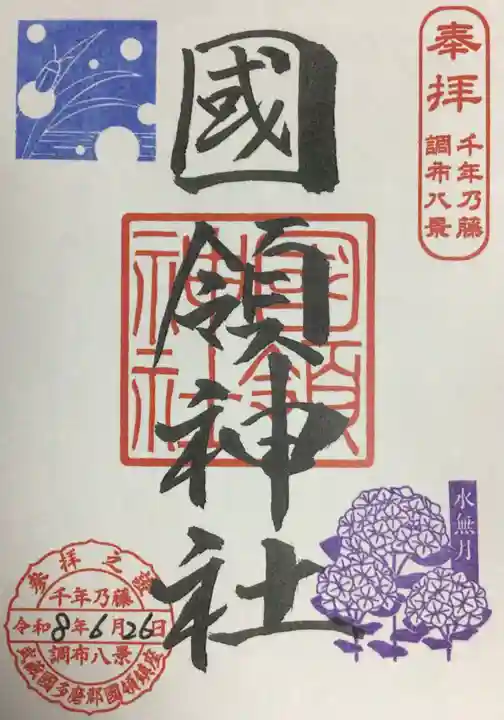 奉拝
千年乃藤
調布八景
國領神社
國領
神社
水無月
参拝之證
千年乃藤
令和8年6月26日
調布八景
武蔵國多磨郡國領鎮座